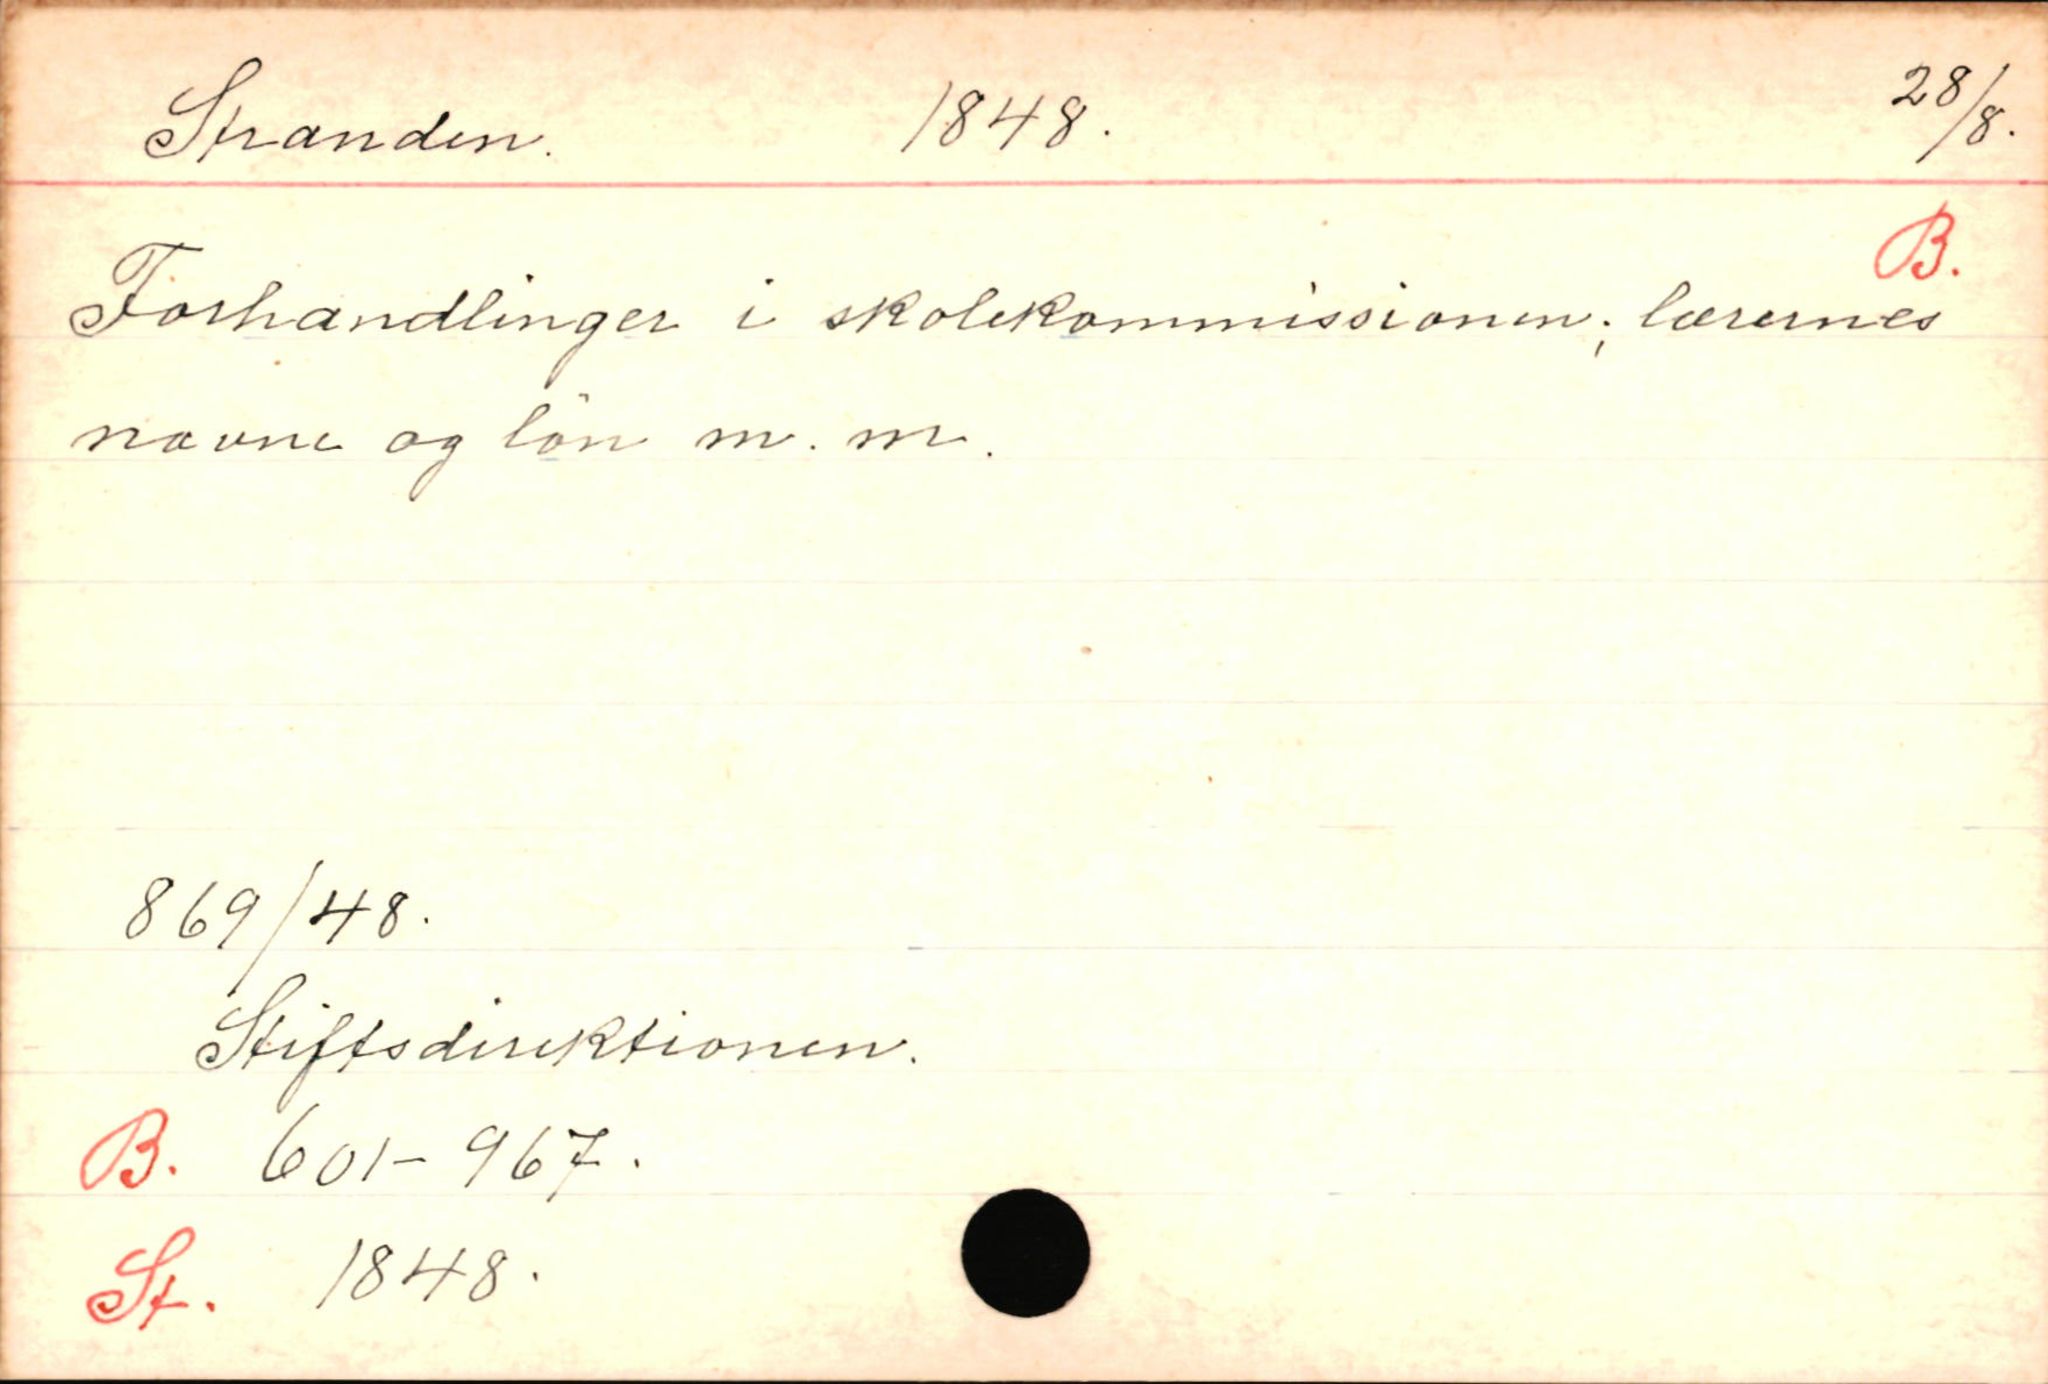 Stranden. 1848. 28/8.
B.
Forhandlinger i skolekommissionen; lærernes
navne og lön m. m.
869/48.
Stiftsdirektionen.
B. 601-967.
St. 1848.